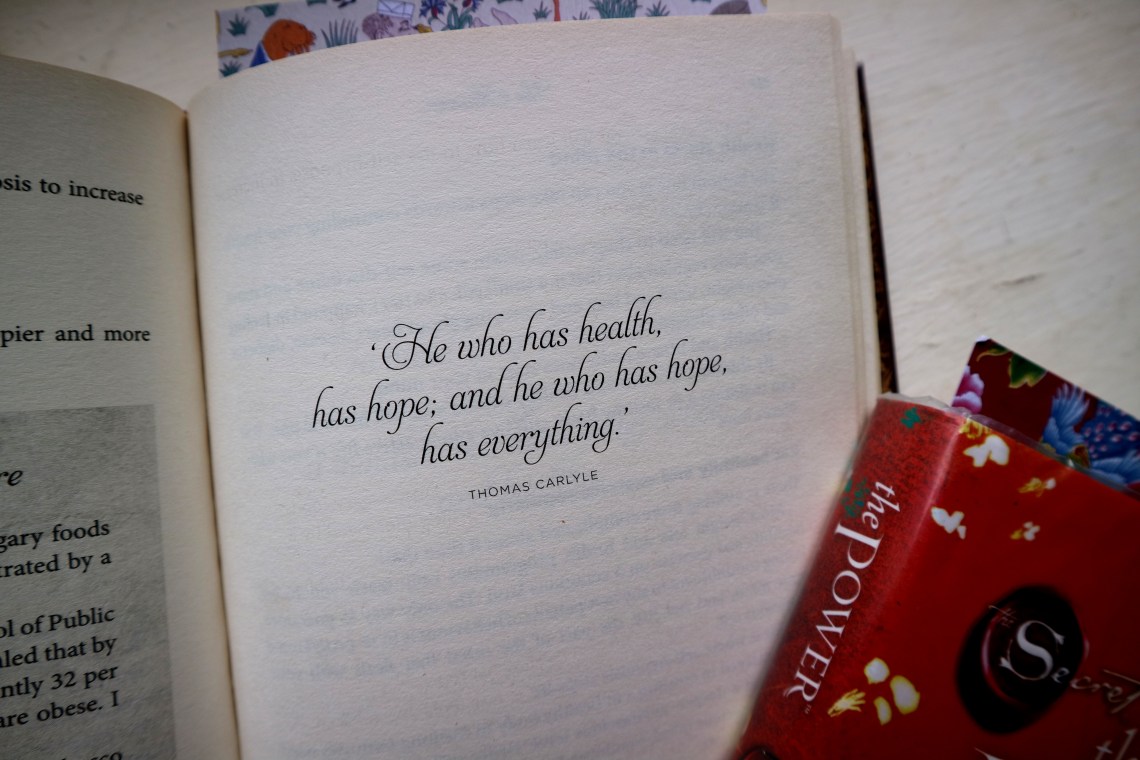 osis to increase
pier and more
re
gary foods
trated by a
ol of Public
aled that by
ntly 32 per
are obese. I
‘He who has health,
has hope; and he who has hope,
has everything.’
THOMAS CARLYLE
the POWER
the
Secret